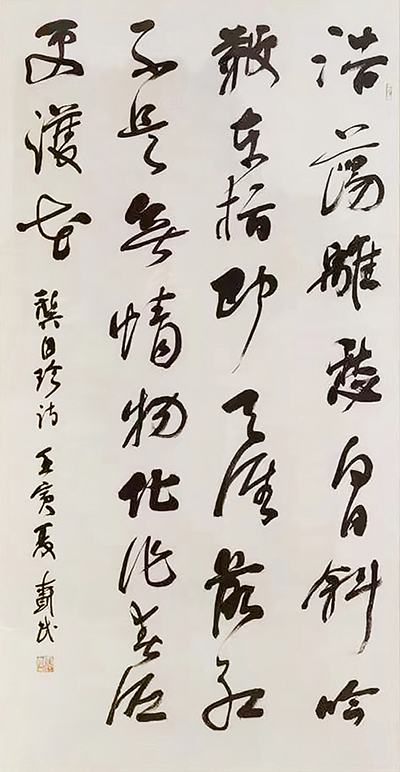 浩蕩離愁白日斜吟
鞭東指即天涯落紅
不是無情物化作春泥
更護花 龔自珍詩 壬寅夏